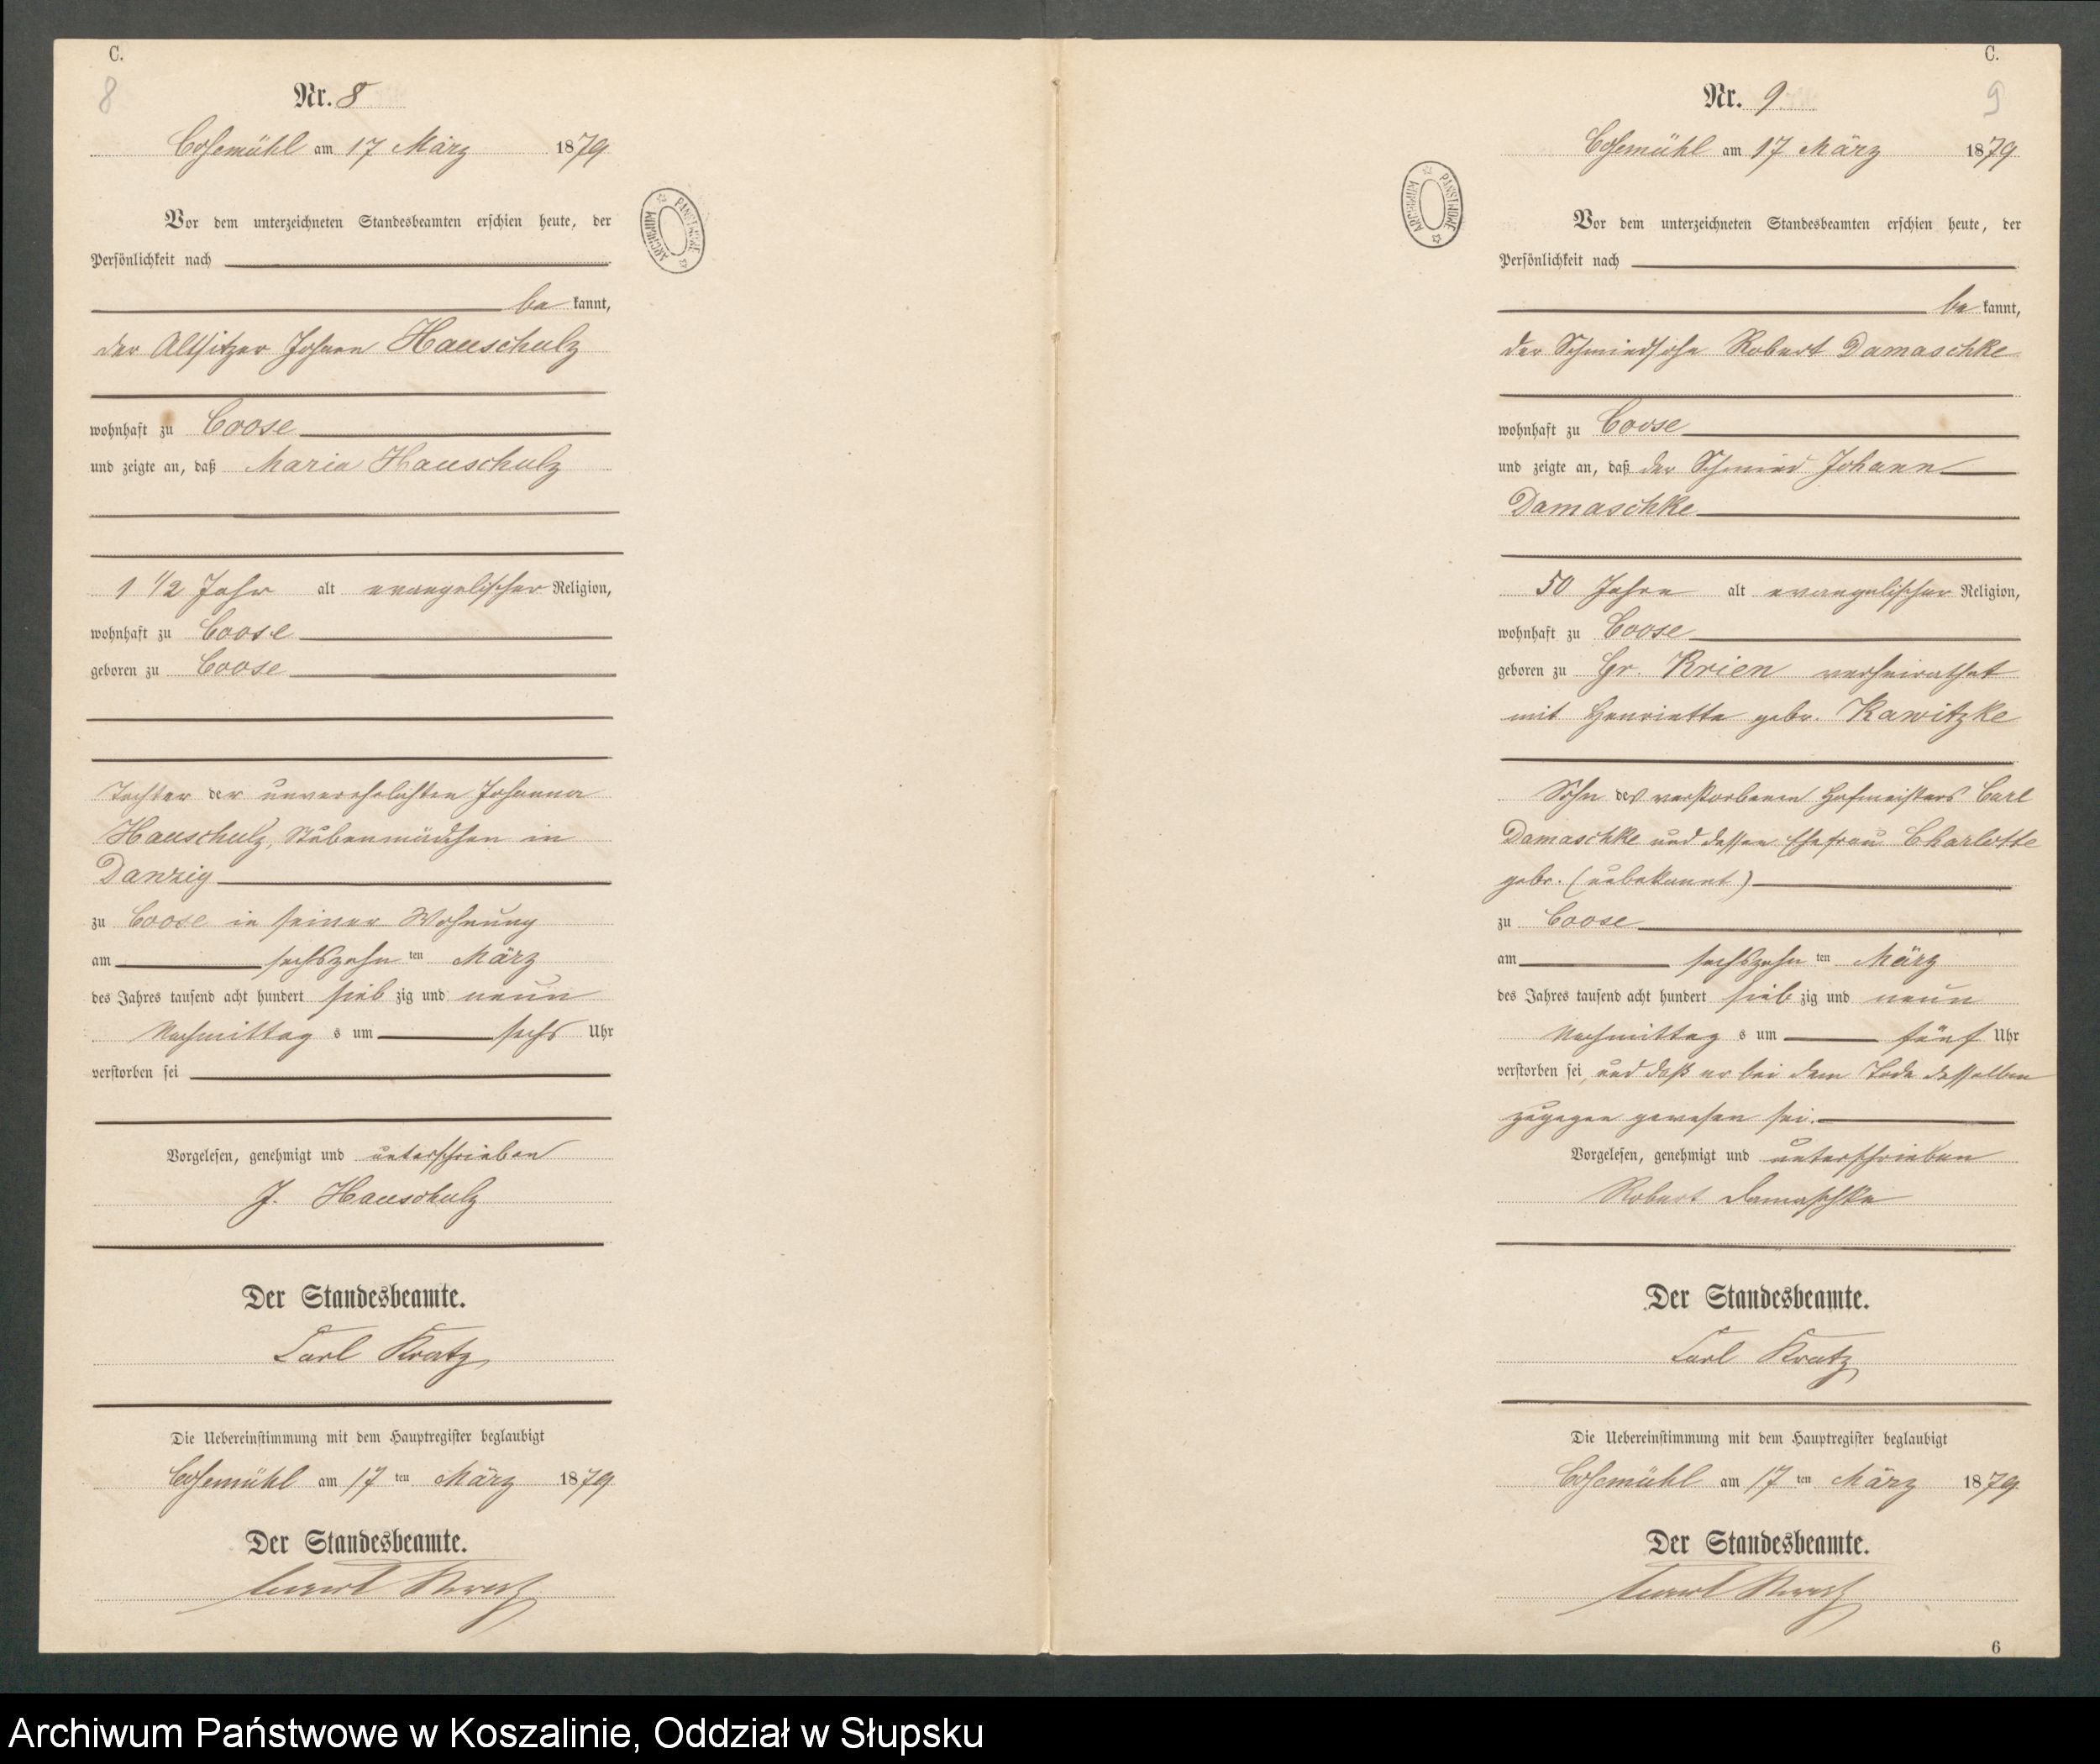 C.
8
Nr. 8
Cosemühl am 17 März 1879
Vor dem unterzeichneten Standesbeamten erschien heute, der
Persönlichkeit nach
be kannt,
der Altsitzer Johann Hauschulz
wohnhaft zu Coose
und zeigte an, daß Maria Hauschulz
1 1/2 Jahr alt evangelischer Religion,
wohnhaft zu Coose
geboren zu Coose
Tochter der unverehelichten Johanna
Hauschulz, Stubenmädchen in
Danzig
zu Coose in seiner Wohnung
am sechszehn ten März
des Jahres tausend acht hundert sieb zig und neun
Nachmittag s um sechs Uhr
verstorben sei
Vorgelesen, genehmigt und unterschrieben
J. Hauschulz
Der Standesbeamte.
Carl Kratz
Die Uebereinstimmung mit dem Hauptregister beglaubigt
Cosemühl am 17 ten März 1879
Der Standesbeamte.
ARCHIWUM PAŃSTWOWE
C.
9
Nr. 9
Cosemühl am 17 März 1879
Vor dem unterzeichneten Standesbeamten erschien heute, der
Persönlichkeit nach
be kannt,
der Schmiedsohn Robert Damaschke
wohnhaft zu Coose
und zeigte an, daß der Schmied Johann
Damaschke
50 Jahre alt evangelischer Religion,
wohnhaft zu Coose
geboren zu Gr. Krien verheirathet
mit Henriette gebr. Kawitzke
Sohn des verstorbenen Hofmeisters Carl
Damaschke und dessen Ehefrau Charlotte
gebr. (unbekannt)
zu Coose
am sechszehn ten März
des Jahres tausend acht hundert sieb zig und neun
Nachmittag s um fünf Uhr
verstorben sei, und daß er bei dem Tode desselben
zugegen gewesen sei.
Vorgelesen, genehmigt und unterschrieben
Robert Damaschke
Der Standesbeamte.
Carl Kratz
Die Uebereinstimmung mit dem Hauptregister beglaubigt
Cosemühl am 17 ten März 1879
Der Standesbeamte.
6
ARCHIWUM PAŃSTWOWE
Archiwum Państwowe w Koszalinie, Oddział w Słupsku